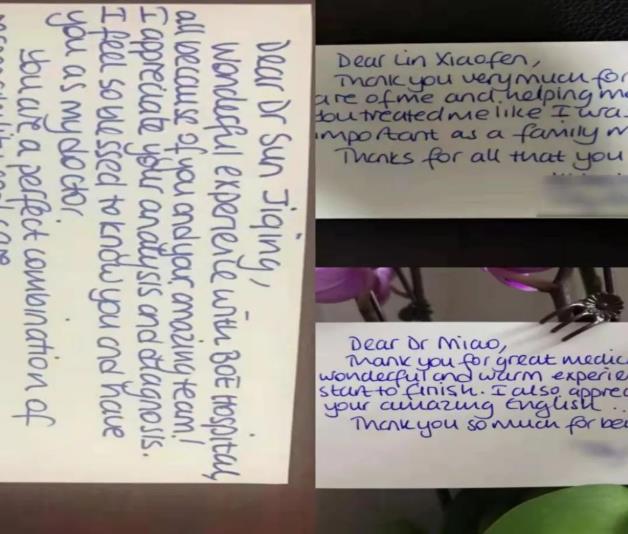 Dear Dr Sun Jiqing,
Wonderful experience with BOE Hospital,
all because of you and your amazing team!
I appreciate your analysis and diagnosis.
I feel so blessed to know you and have
you as my doctor.
You are a perfect combination of
Dear Lin Xiaofen,
Thank you very much for
are of me and helping me
you treated me like I was
important as a family m
Thanks for all that you
Dear Dr Miao,
Thank you for great medic
wonderful and warm experie
start to finish. I also apprec
your amazing English ..
Thank you so much for bei